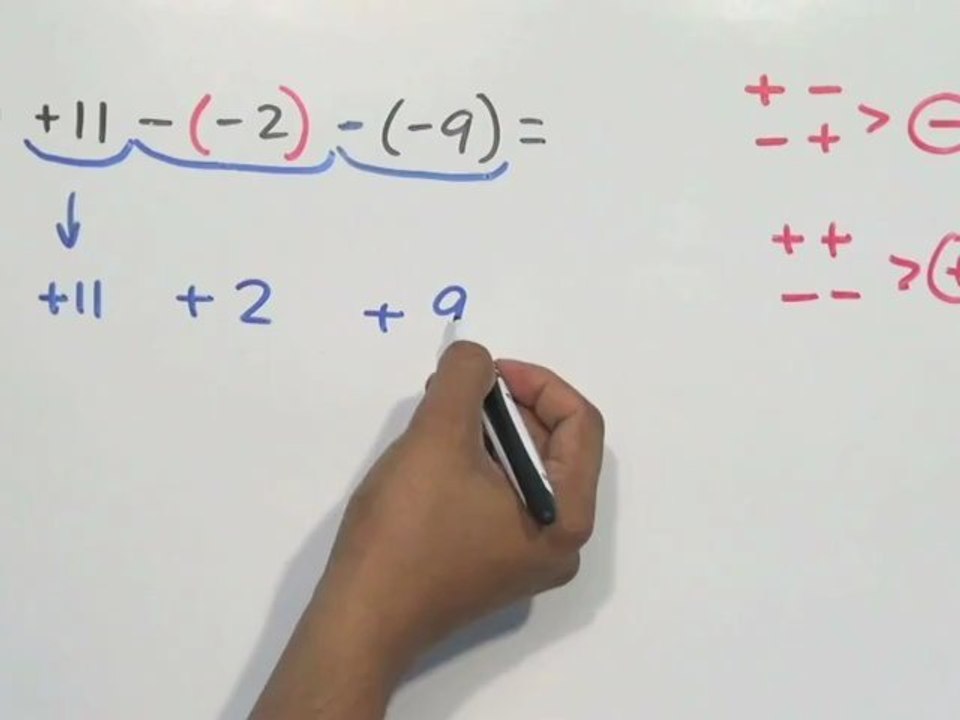 +11 -(-2) - (-9) =
+11 + 2 + 9
+ -
- + > -
+ +
- - > +